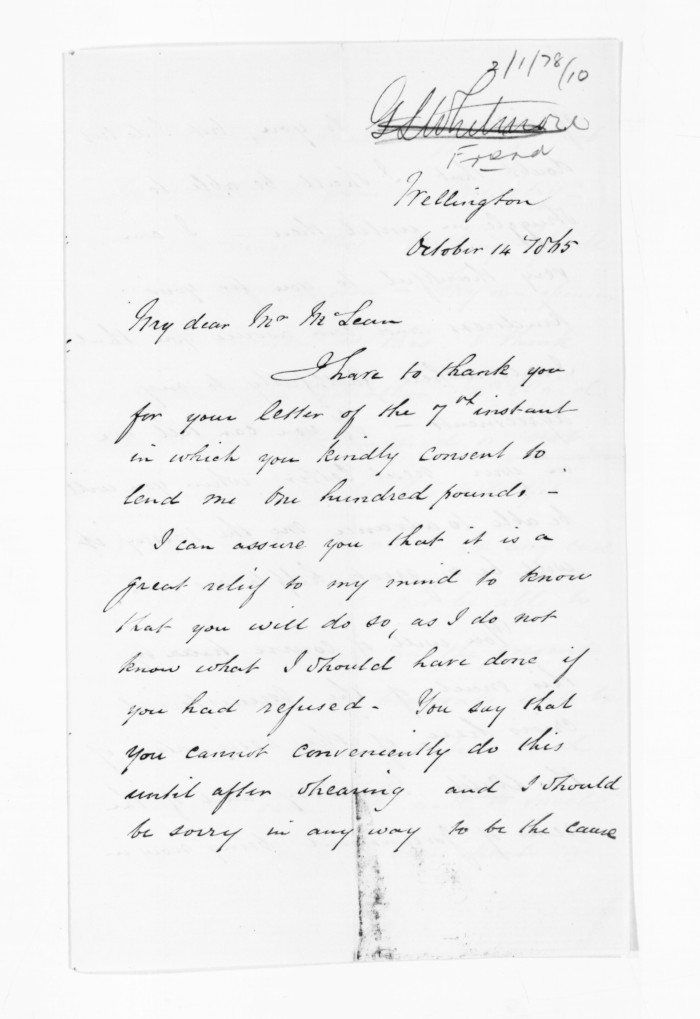 3/1/78/10
G S Whitmore
Wellington
October 14th 1865
My dear Mr McLean
I have to thank you
for your letter of the 7th instant
in which you kindly consent to
lend me One hundred pounds. -
I can assure you that it is a
great relief to my mind to know
that you will do so, as I do not
know what I should have done if
you had refused - You say that
you cannot conveniently do this
until after shearing and I should
be sorry in any way to be the cause